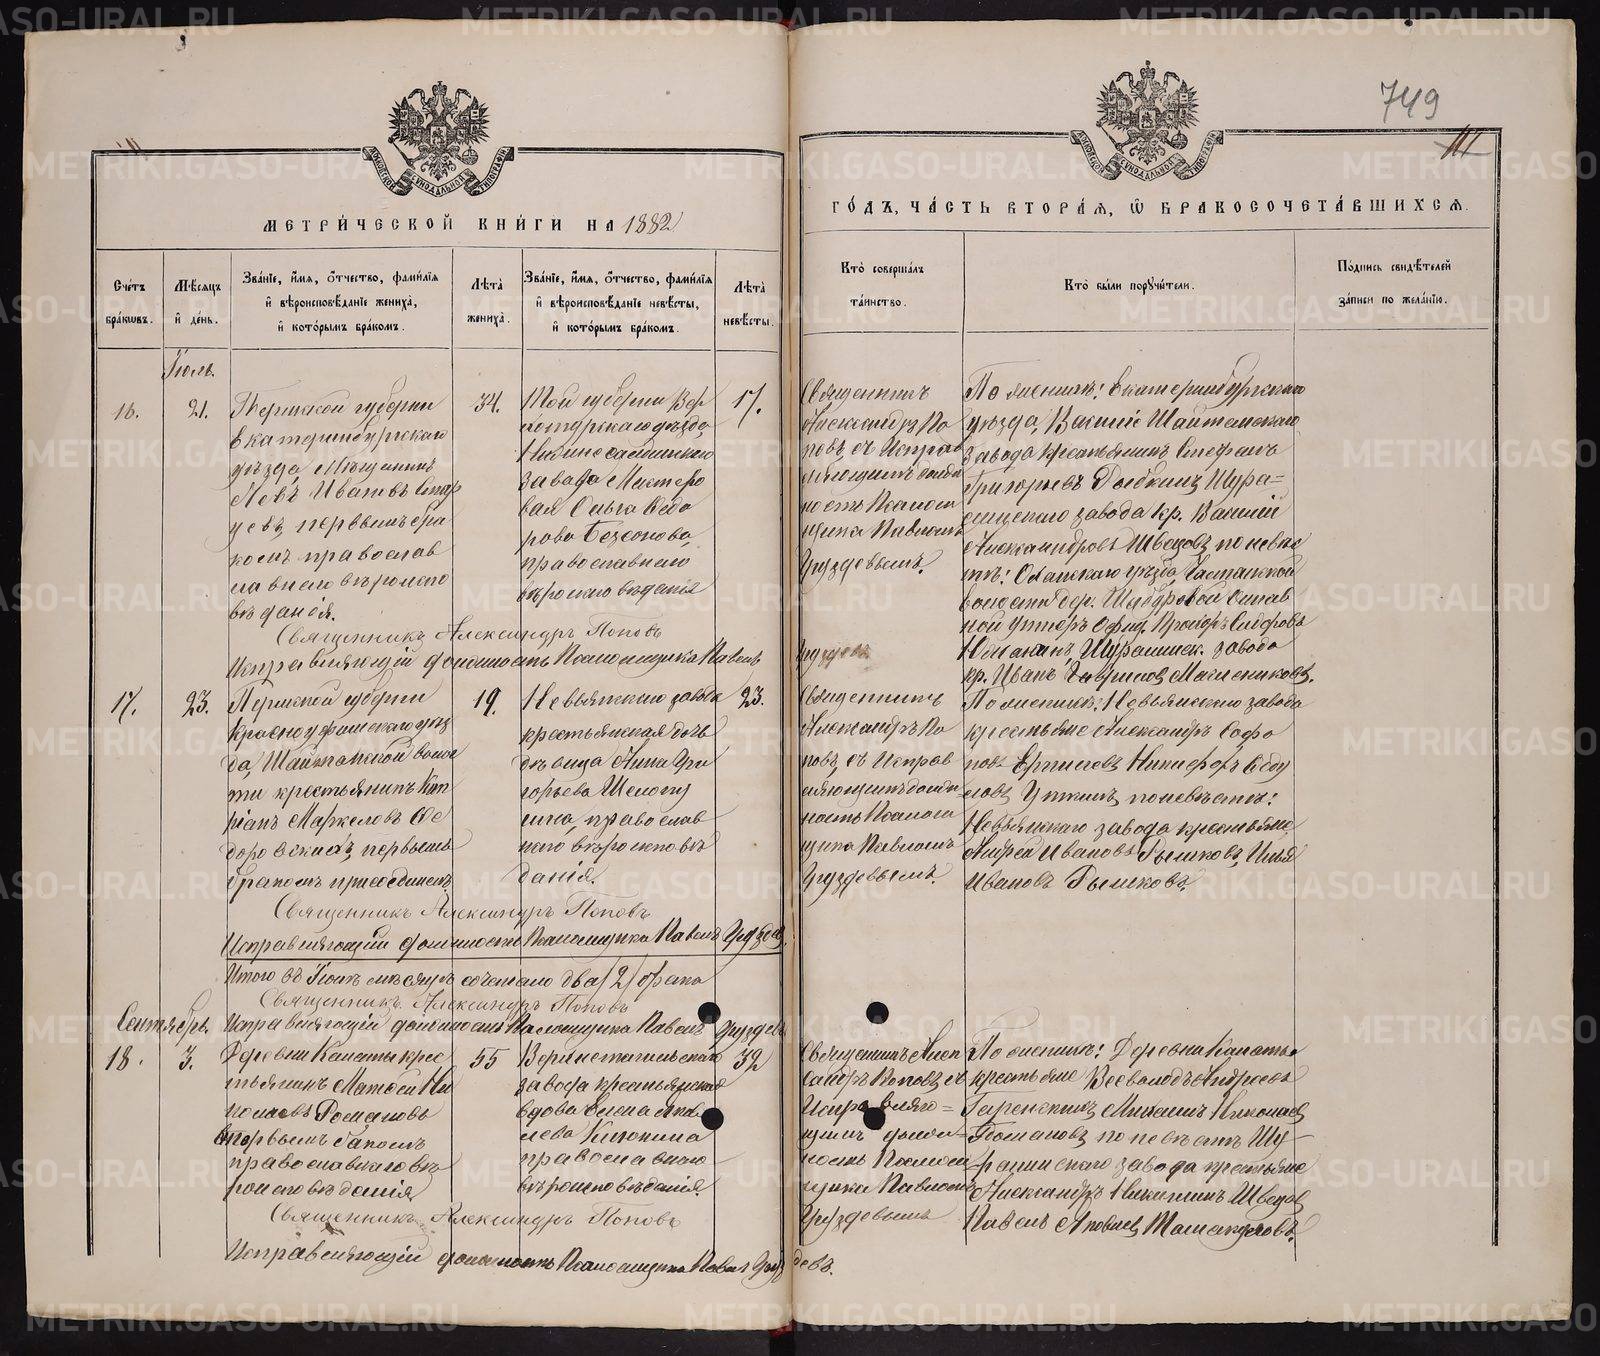 749
111
МЕТРИ́ЧЕСКОЙ КНИ́ГИ НА 1882
ГО́ДЪ, ЧА́СТЬ ВТОРА́Я, Ѡ БРАКОСОЧЕТА́ВШИХСЯ.
Сче́тъ бра́кѡвъ.
Мѣ́сяцъ и҆ де́нь.
Зва́нїе, и҆́мя, ѻ҆́тчество, фами́лїя
и҆ вѣроисповѣ́данїе жениха̀,
и҆ кото́рымъ бра́комъ.
Лѣта̀ жениха̀.
Зва́нїе, и҆́мя, ѻ҆́тчество, фами́лїя
и҆ вѣроисповѣ́данїе невѣ́сты,
и҆ кото́рымъ бра́комъ.
Лѣта̀ невѣ́сты.
Кто̀ соверша́лъ
та́инство.
Кто̀ бы́ли порꙋчи́тели.
По́дпись свидѣ́телей
за́писи по жела́нїю.
Іюль.
16.
21.
Пермской губерніи
Екатеринбургскаго
уѣзда, Мѣщанинъ
Левъ Ивановъ
первымъ бра
комъ православ
наго вѣроиспо
вѣданія.
34.
Той губерніи Вер
хотурскаго уѣзда,
Нижнесалдинскаго
завода Мастеро
вая Ольга Ѳедо
рова Безсонова,
православнаго
вѣроисповѣданія
17.
Священникъ
Александръ По
повъ, съ Исправ
ляющимъ долж
ность Псалом
щика Павломъ
Груздевымъ.
По женихѣ: Екатеринбургскаго
уѣзда, Васильево Шайтанскаго
завода крестьянинъ Стефанъ
Григорьевъ
завода кр. Василій
Александровъ Швецовъ, по невѣс
тѣ: Оханскаго уѣзда, Частинской
волости дер. Шабуровой отстав
ной унтеръ офиц. Прохоръ Сидоровъ
завода
кр. Иванъ Гавриловъ Масленниковъ.
Священникъ Александръ Поповъ
Исправляющій должность Псаломщика Павелъ Груздевъ
17.
23.
Пермской губерніи
Красноуфимскаго уѣз
да, Шайтанской волос
ти крестьянинъ Кип
ріанъ Маркеловъ Ѳе
доровскихъ, первымъ
бракомъ присоединенъ
19.
Невьянскаго завода
крестьянская дочь
дѣвица Анна Гри
горьева Шелогу
рина, православ
наго вѣроисповѣ
данія.
23.
Священникъ
Александръ По
повъ, съ Исправ
ляющимъ долж
ность Псалом
щика Павломъ
Груздевымъ.
По женихѣ: Невьянскаго завода
крестьяне Александръ Софо
новъ Никифоръ Ѳедо
товъ по невѣстѣ:
Невьянскаго завода крестьяне
Андрей Ивановъ Рычковъ, Илья
Ивановъ Рычковъ.
Священникъ Александръ Поповъ
Исправляющій должность Псаломщика Павелъ Груздевъ.
Итого въ Іюлѣ мѣсяцѣ сочетано два /2/ брака
Священникъ Александръ Поповъ
Сентябрь.
Исправляющій должность Псаломщика Павелъ Груздевъ
18.
3.
Деревни Каматы крес
тьянинъ Матвей Ни
колаевъ Романовъ
вторымъ бракомъ
православнаго вѣ
роисповѣданія
55
Верхнетагильскаго
завода крестьянская
вдова Елена Яков
лева
православнаго
вѣроисповѣданія.
39
Священникъ Алек
сандръ Поповъ съ
Исправляю=
щимъ долж=
ность Псалом
щика Павломъ
Груздевымъ
По женихѣ: Деревни Каматы
крестьяне Всеволодъ Андреевъ
Михаилъ Николаев
Романовъ, по невѣстѣ Шу-
ралинскаго завода крестьяне
Александръ Никитинъ Швецовъ
Павелъ Яковлевъ
Священникъ Александръ Поповъ
Исправляющій должность Псаломщика Павелъ Груздевъ.
METRIKI.GASO-URAL.RU